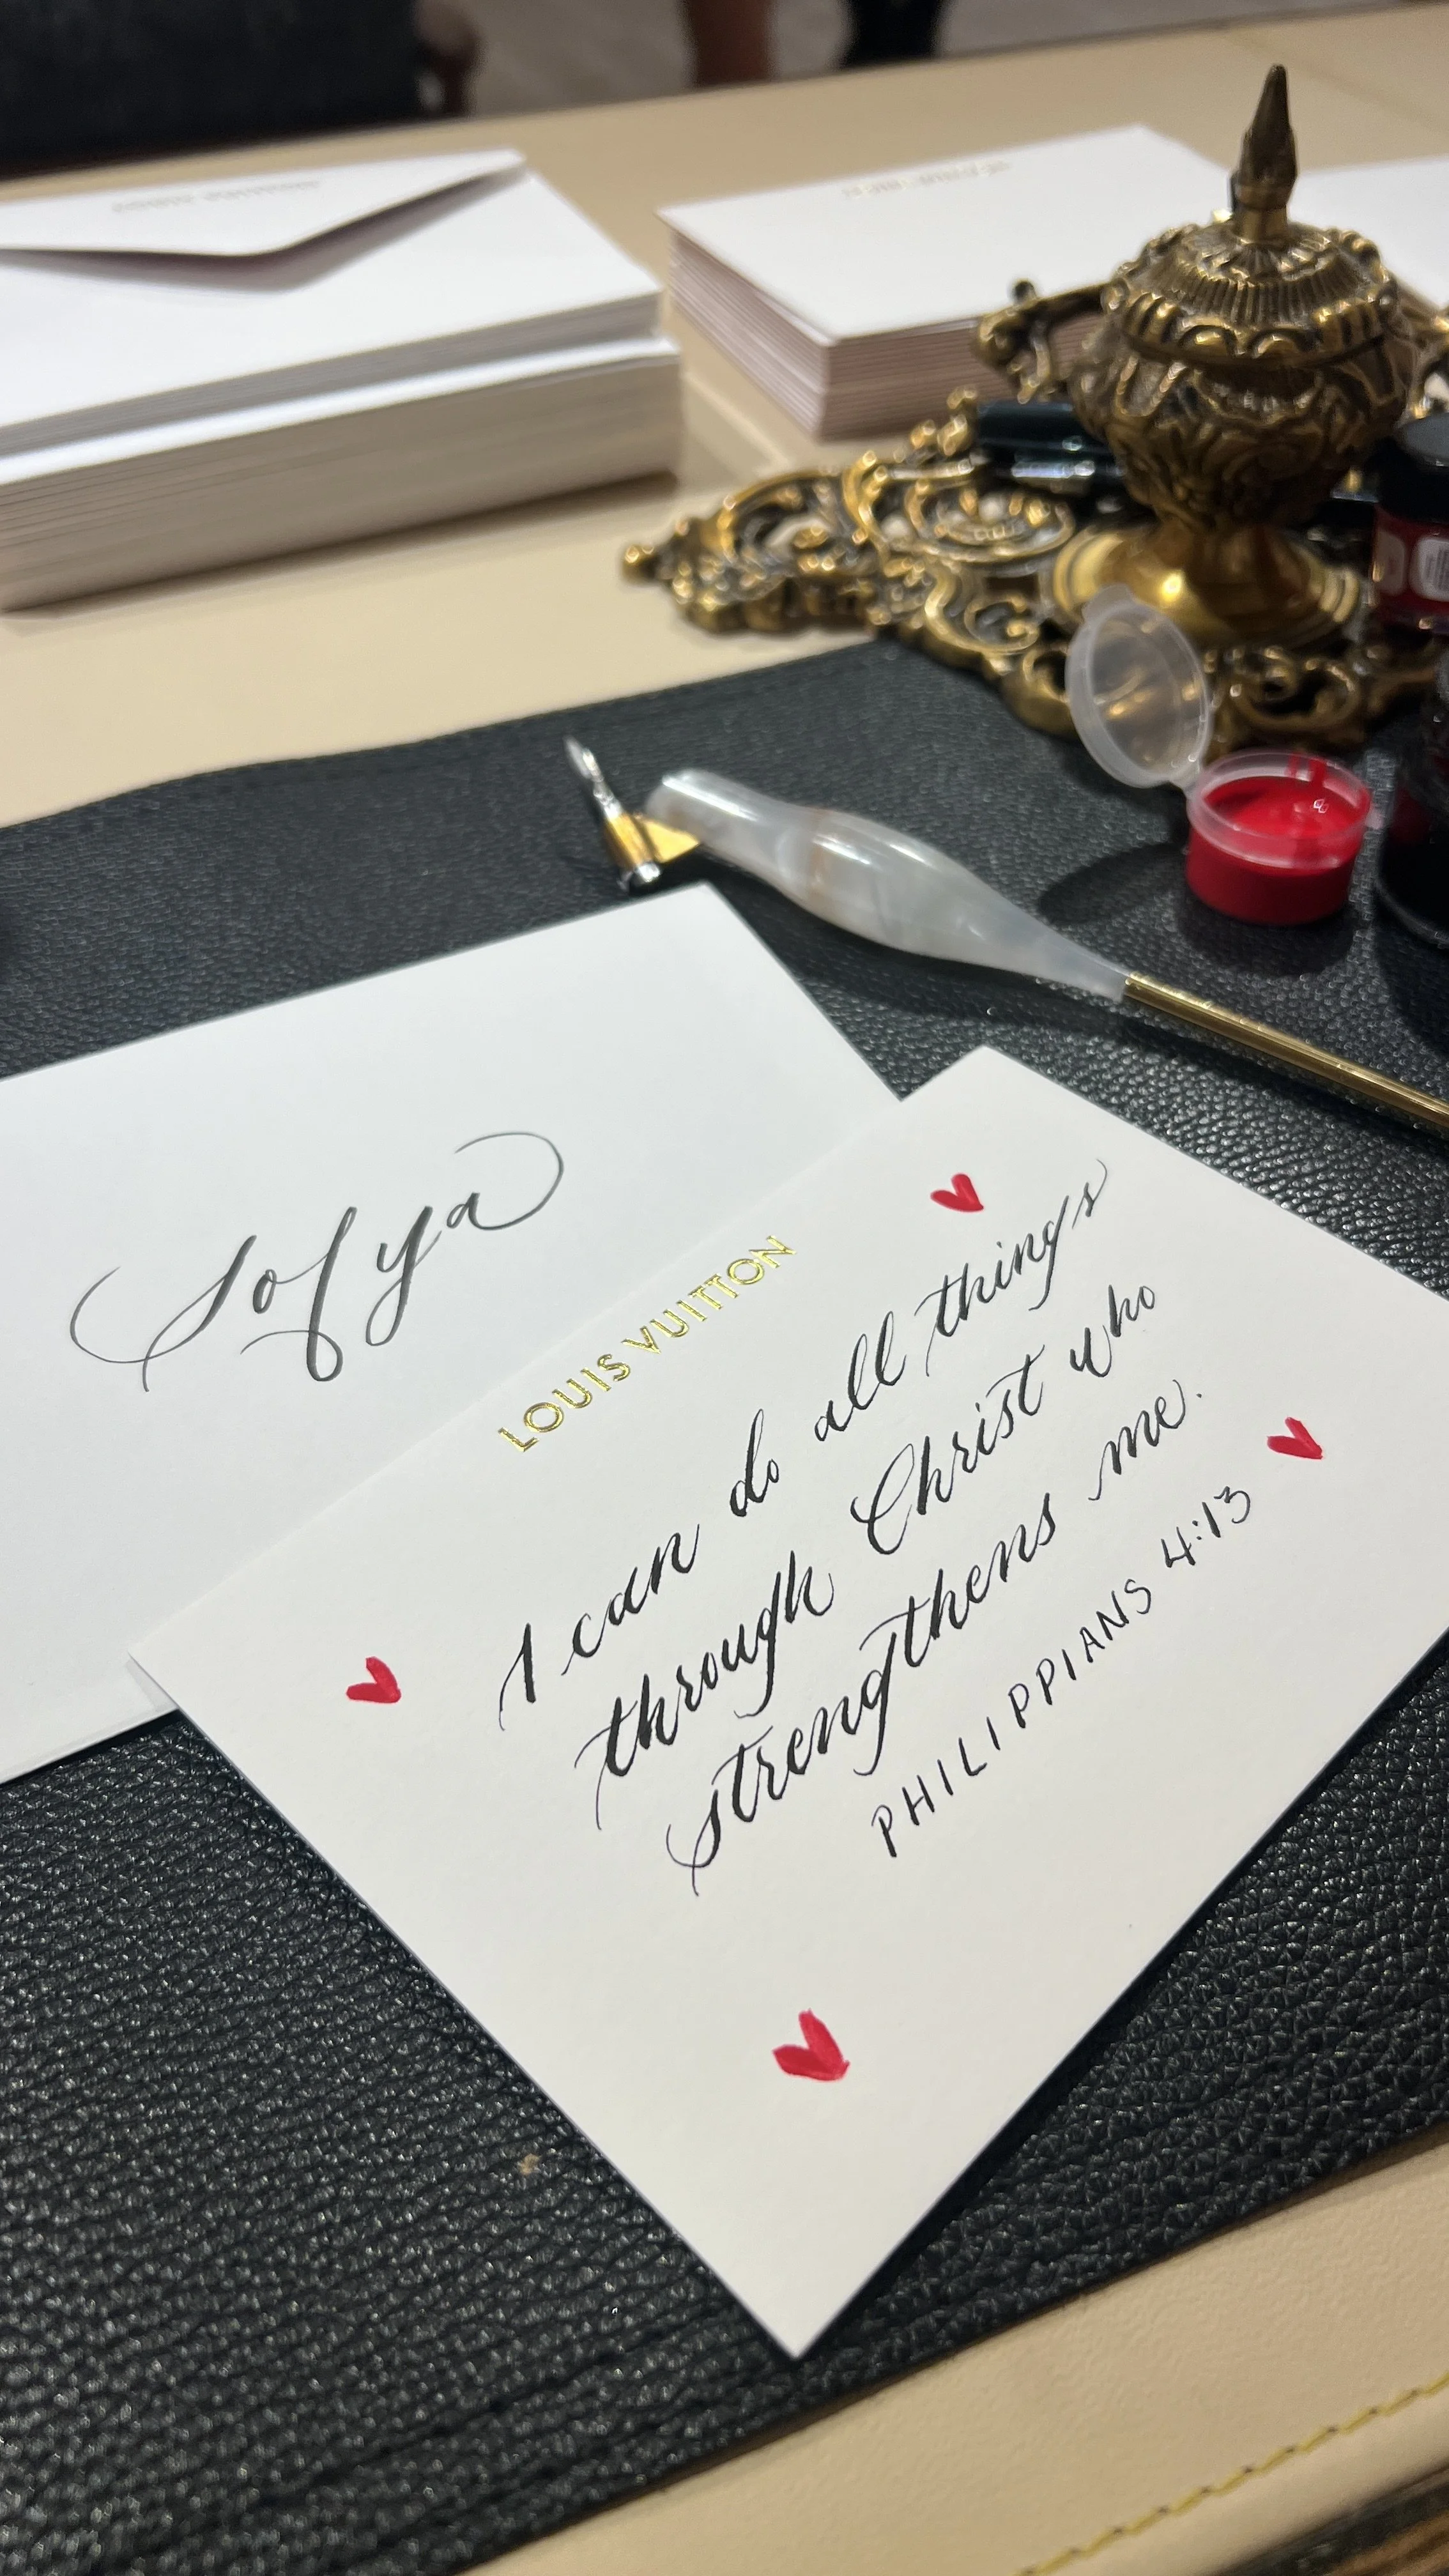 Sofya
LOUIS VUITTON
I can do all things
through Christ who
strengthens me.
PHILIPPIANS 4:13